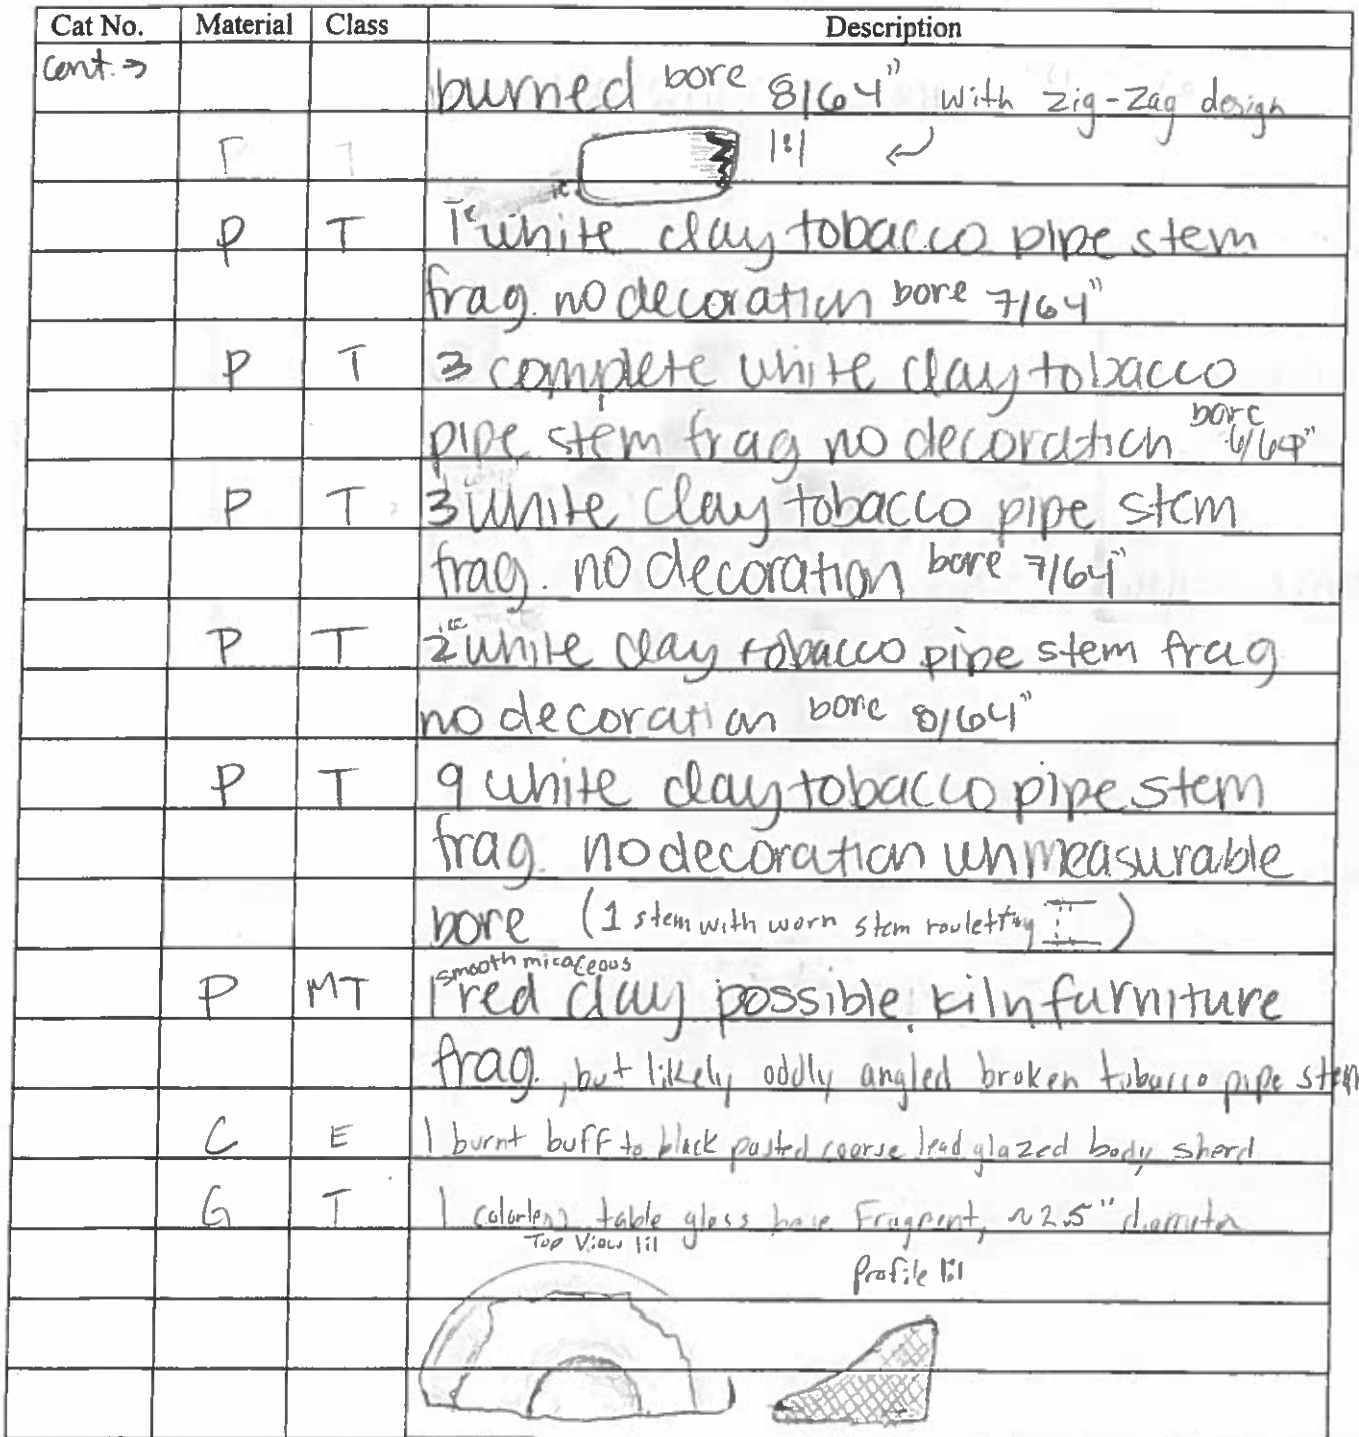 Cat No. Material Class Description
Cont. → burned bore 8/64" with zig-zag design
1:1
P T 1 white clay tobacco pipe stem
frag. no decoration bore 7/64"
P T 3 complete white clay tobacco
pipe stem frag no decoration bore 6/64"
P T 3 white clay tobacco pipe stem
frag. no decoration bore 7/64"
P T 2 white clay tobacco pipe stem frag
no decoration bore 8/64"
P T 9 white clay tobacco pipe stem
frag. no decoration unmeasurable
bore (1 stem with worn stem rouletting)
smooth micaceous
P MT 1 red clay possible kiln furniture
frag., but likely oddly angled broken tobacco pipe stem
C E 1 burnt buff to black pasted coarse lead glazed body sherd
G T 1 colorless table glass base Fragment, ~2.5" diameter
Top View 1:1
Profile 1:1